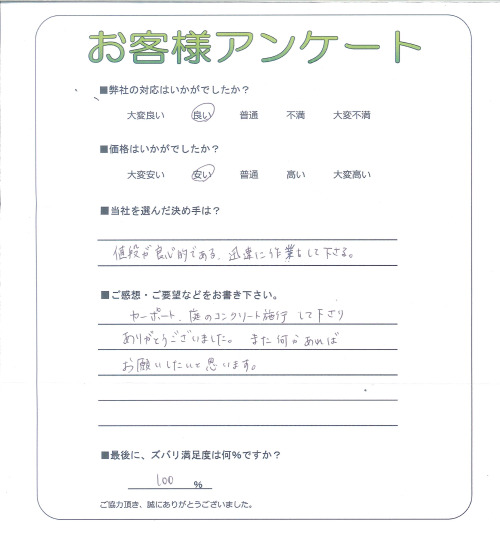 お客様アンケート
■弊社の対応はいかがでしたか？
大変良い 良い 普通 不満 大変不満
■価格はいかがでしたか？
大変安い 安い 普通 高い 大変高い
■当社を選んだ決め手は？
値段が良心的である、迅速に作業をして下さる。
■ご感想・ご要望などをお書き下さい。
カーポート、庭のコンクリート施行 して下さり
ありがとうございました。 また何かあれば
お願いしたいと思います。
■最後に、ズバリ満足度は何％ですか？
100 ％
ご協力頂き、誠にありがとうございました。